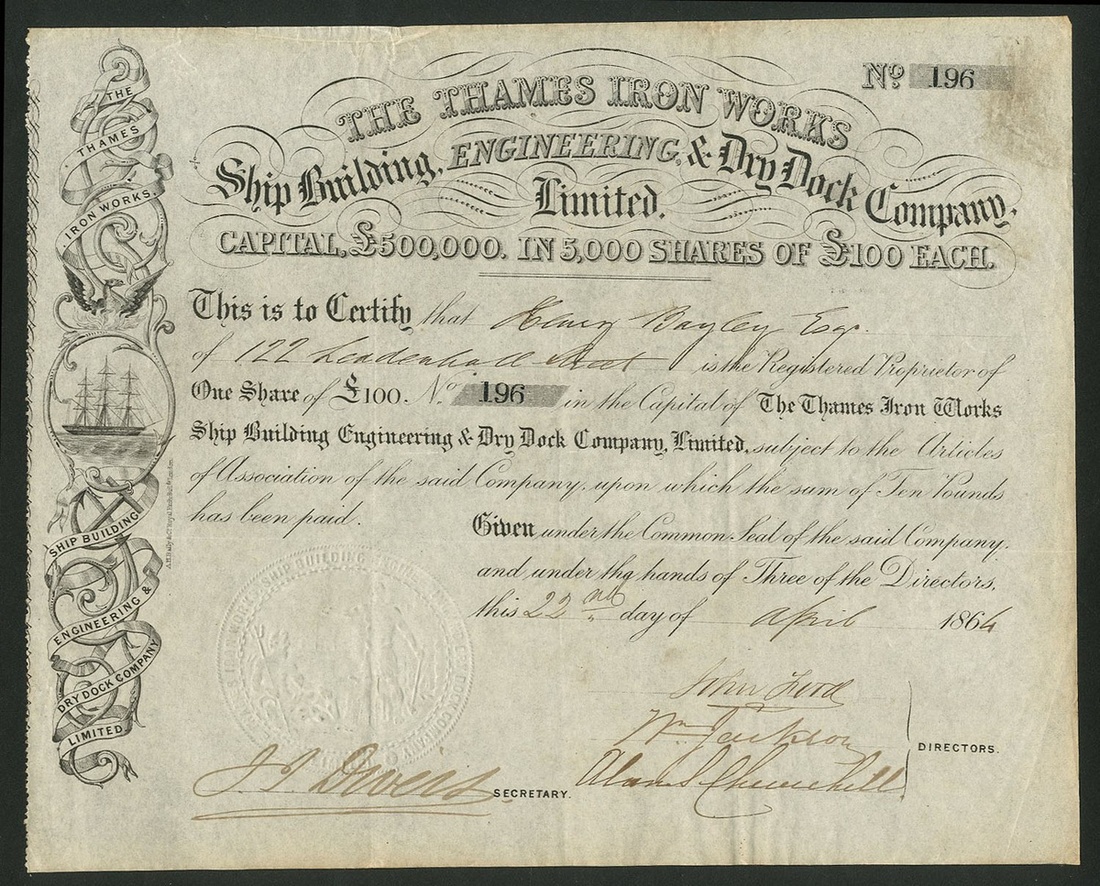 No. 196
THE THAMES IRON WORKS
Ship Building, ENGINEERING, & Dry Dock Company,
Limited.
CAPITAL, £500,000. IN 5,000 SHARES OF £100 EACH.
This is to Certify that Henry Bayley Esqr.
of 122 Leadenhall Street is the Registered Proprietor of
One Share of £100. No. 196 in the Capital of The Thames Iron Works
Ship Building Engineering & Dry Dock Company, Limited, subject to the Articles
of Association of the said Company, upon which the sum of Ten Pounds
has been paid.
Given under the Common Seal of the said Company,
and under the hands of Three of the Directors,
this 22nd day of April 1864
John Ford
Wm. Jackson
Churchill
DIRECTORS.
SECRETARY.
THE
THAMES
IRON WORKS
SHIP BUILDING
ENGINEERING &
DRY DOCK COMPANY
LIMITED